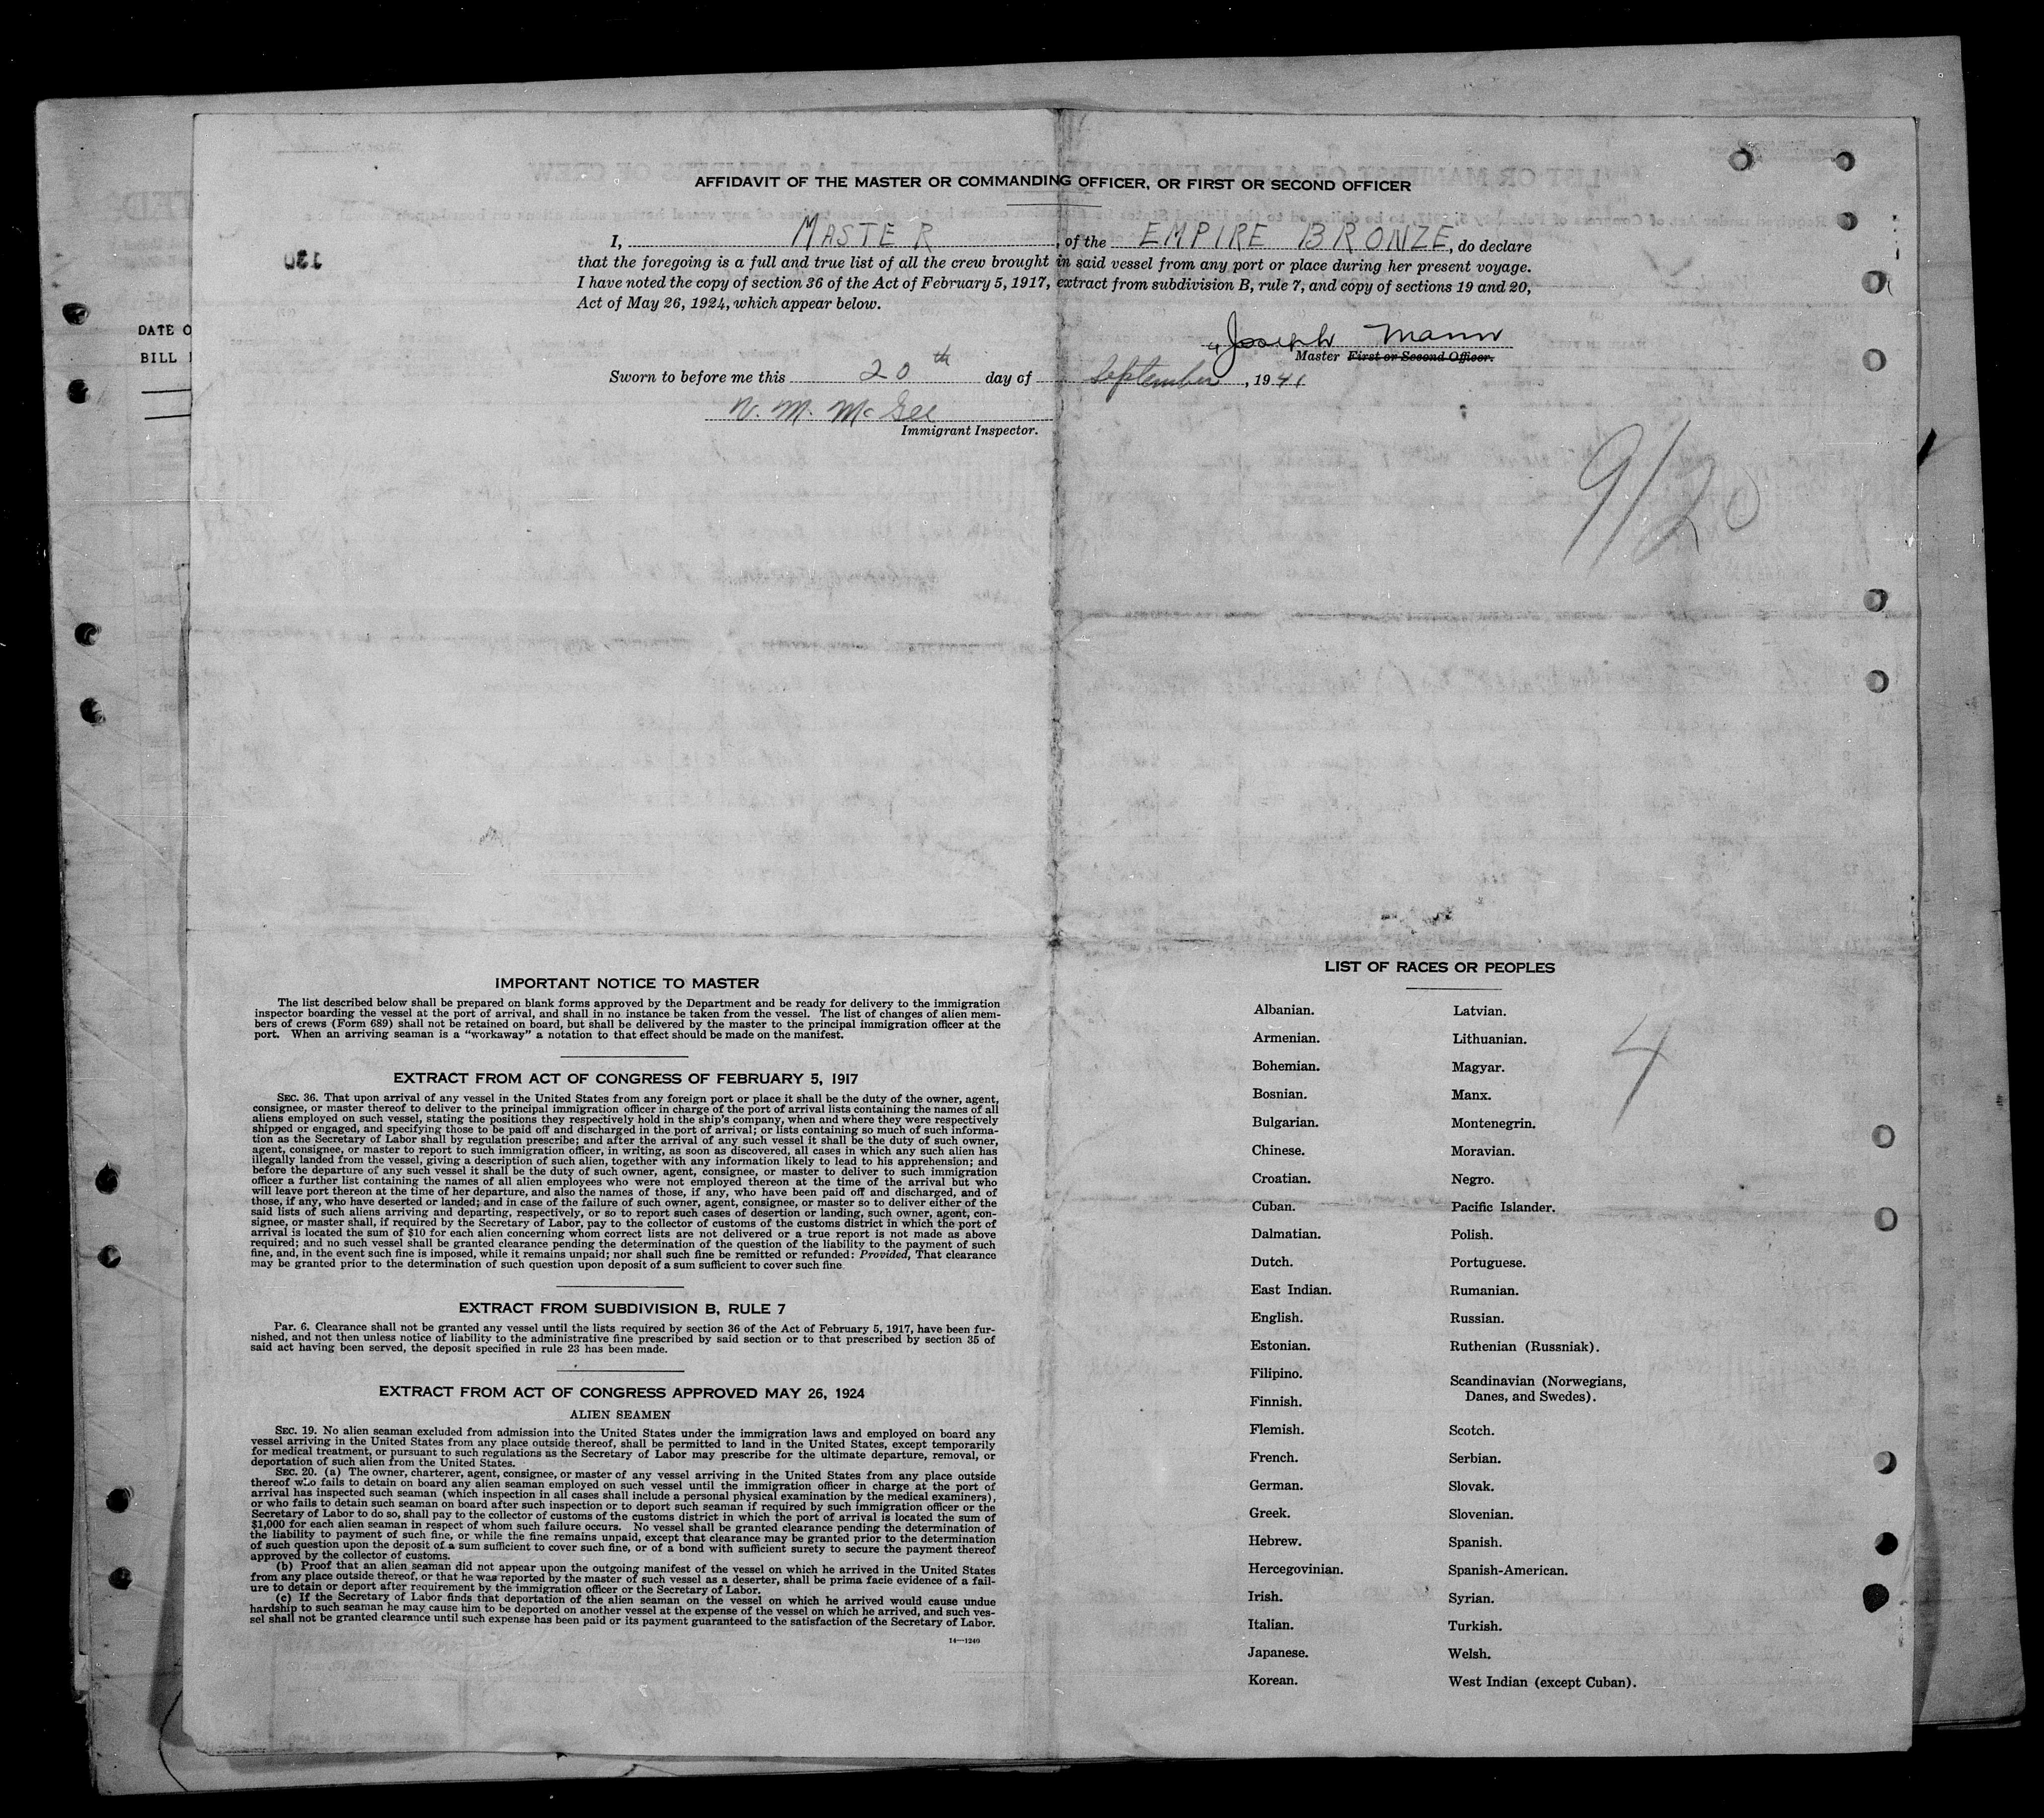 AFFIDAVIT OF THE MASTER OR COMMANDING OFFICER, OR FIRST OR SECOND OFFICER
I, MASTER, of the EMPIRE BRONZE, do declare
that the foregoing is a full and true list of all the crew brought in said vessel from any port or place during her present voyage.
I have noted the copy of section 36 of the Act of February 5, 1917, extract from subdivision B, rule 7, and copy of sections 19 and 20,
Act of May 26, 1924, which appear below.
130
DATE O
BILL
Joseph Mann
Master First or Second Officer.
Sworn to before me this 20th day of September, 1941
N. M. McGee
Immigrant Inspector.
9/20
IMPORTANT NOTICE TO MASTER
The list described below shall be prepared on blank forms approved by the Department and be ready for delivery to the immigration
inspector boarding the vessel at the port of arrival, and shall in no instance be taken from the vessel. The list of changes of alien mem-
bers of crews (Form 689) shall not be retained on board, but shall be delivered by the master to the principal immigration officer at the
port. When an arriving seaman is a "workaway" a notation to that effect should be made on the manifest.
EXTRACT FROM ACT OF CONGRESS OF FEBRUARY 5, 1917
SEC. 36. That upon arrival of any vessel in the United States from any foreign port or place it shall be the duty of the owner, agent,
consignee, or master thereof to deliver to the principal immigration officer in charge of the port of arrival lists containing the names of all
aliens employed on such vessel, stating the positions they respectively hold in the ship's company, when and where they were respectively
shipped or engaged, and specifying those to be paid off and discharged in the port of arrival; or lists containing so much of such informa-
tion as the Secretary of Labor shall by regulation prescribe; and after the arrival of any such vessel it shall be the duty of such owner,
agent, consignee, or master to report to such immigration officer, in writing, as soon as discovered, all cases in which any such alien has
illegally landed from the vessel, giving a description of such alien, together with any information likely to lead to his apprehension; and
before the departure of any such vessel it shall be the duty of such owner, agent, consignee, or master to deliver to such immigration
officer a further list containing the names of all alien employees who were not employed thereon at the time of the arrival but who
will leave port thereon at the time of her departure, and also the names of those, if any, who have been paid off and discharged, and of
those, if any, who have deserted or landed; and in case of the failure of such owner, agent, consignee, or master so to deliver either of the
said lists of such aliens arriving and departing, respectively, or so to report such cases of desertion or landing, such owner, agent, con-
signee, or master shall, if required by the Secretary of Labor, pay to the collector of customs of the customs district in which the port of
arrival is located the sum of $10 for each alien concerning whom correct lists are not delivered or a true report is not made as above
required; and no such vessel shall be granted clearance pending the determination of the question of the liability to the payment of such
fine, and, in the event such fine is imposed, while it remains unpaid; nor shall such fine be remitted or refunded: Provided, That clearance
may be granted prior to the determination of such question upon deposit of a sum sufficient to cover such fine
EXTRACT FROM SUBDIVISION B, RULE 7
Par. 6. Clearance shall not be granted any vessel until the lists required by section 36 of the Act of February 5, 1917, have been fur-
nished, and not then unless notice of liability to the administrative fine prescribed by said section or to that prescribed by section 35 of
said act having been served, the deposit specified in rule 23 has been made.
EXTRACT FROM ACT OF CONGRESS APPROVED MAY 26, 1924
ALIEN SEAMEN
SEC. 19. No alien seaman excluded from admission into the United States under the immigration laws and employed on board any
vessel arriving in the United States from any place outside thereof, shall be permitted to land in the United States, except temporarily
for medical treatment, or pursuant to such regulations as the Secretary of Labor may prescribe for the ultimate departure, removal, or
deportation of such alien from the United States.
SEC. 20. (a) The owner, charterer, agent, consignee, or master of any vessel arriving in the United States from any place outside
thereof who fails to detain on board any alien seaman employed on such vessel until the immigration officer in charge at the port of
arrival has inspected such seaman (which inspection in all cases shall include a personal physical examination by the medical examiners),
or who fails to detain such seaman on board after such inspection or to deport such seaman if required by such immigration officer or the
Secretary of Labor to do so, shall pay to the collector of customs of the customs district in which the port of arrival is located the sum of
$1,000 for each alien seaman in respect of whom such failure occurs. No vessel shall be granted clearance pending the determination of
the liability to payment of such fine, or while the fine remains unpaid, except that clearance may be granted prior to the determination
of such question upon the deposit of a sum sufficient to cover such fine, or of a bond with sufficient surety to secure the payment thereof
approved by the collector of customs.
(b) Proof that an alien seaman did not appear upon the outgoing manifest of the vessel on which he arrived in the United States
from any place outside thereof, or that he was reported by the master of such vessel as a deserter, shall be prima facie evidence of a fail-
ure to detain or deport after requirement by the immigration officer or the Secretary of Labor.
(c) If the Secretary of Labor finds that deportation of the alien seaman on the vessel on which he arrived would cause undue
hardship to such seaman he may cause him to be deported on another vessel at the expense of the vessel on which he arrived, and such ves-
sel shall not be granted clearance until such expense has been paid or its payment guaranteed to the satisfaction of the Secretary of Labor.
14—1240
LIST OF RACES OR PEOPLES
4
Albanian.
Armenian.
Bohemian.
Bosnian.
Bulgarian.
Chinese.
Croatian.
Cuban.
Dalmatian.
Dutch.
East Indian.
English.
Estonian.
Filipino.
Finnish.
Flemish.
French.
German.
Greek.
Hebrew.
Hercegovinian.
Irish.
Italian.
Japanese.
Korean.
Latvian.
Lithuanian.
Magyar.
Manx.
Montenegrin.
Moravian.
Negro.
Pacific Islander.
Polish.
Portuguese.
Rumanian.
Russian.
Ruthenian (Russniak).
Scandinavian (Norwegians,
Danes, and Swedes).
Scotch.
Serbian.
Slovak.
Slovenian.
Spanish.
Spanish-American.
Syrian.
Turkish.
Welsh.
West Indian (except Cuban).